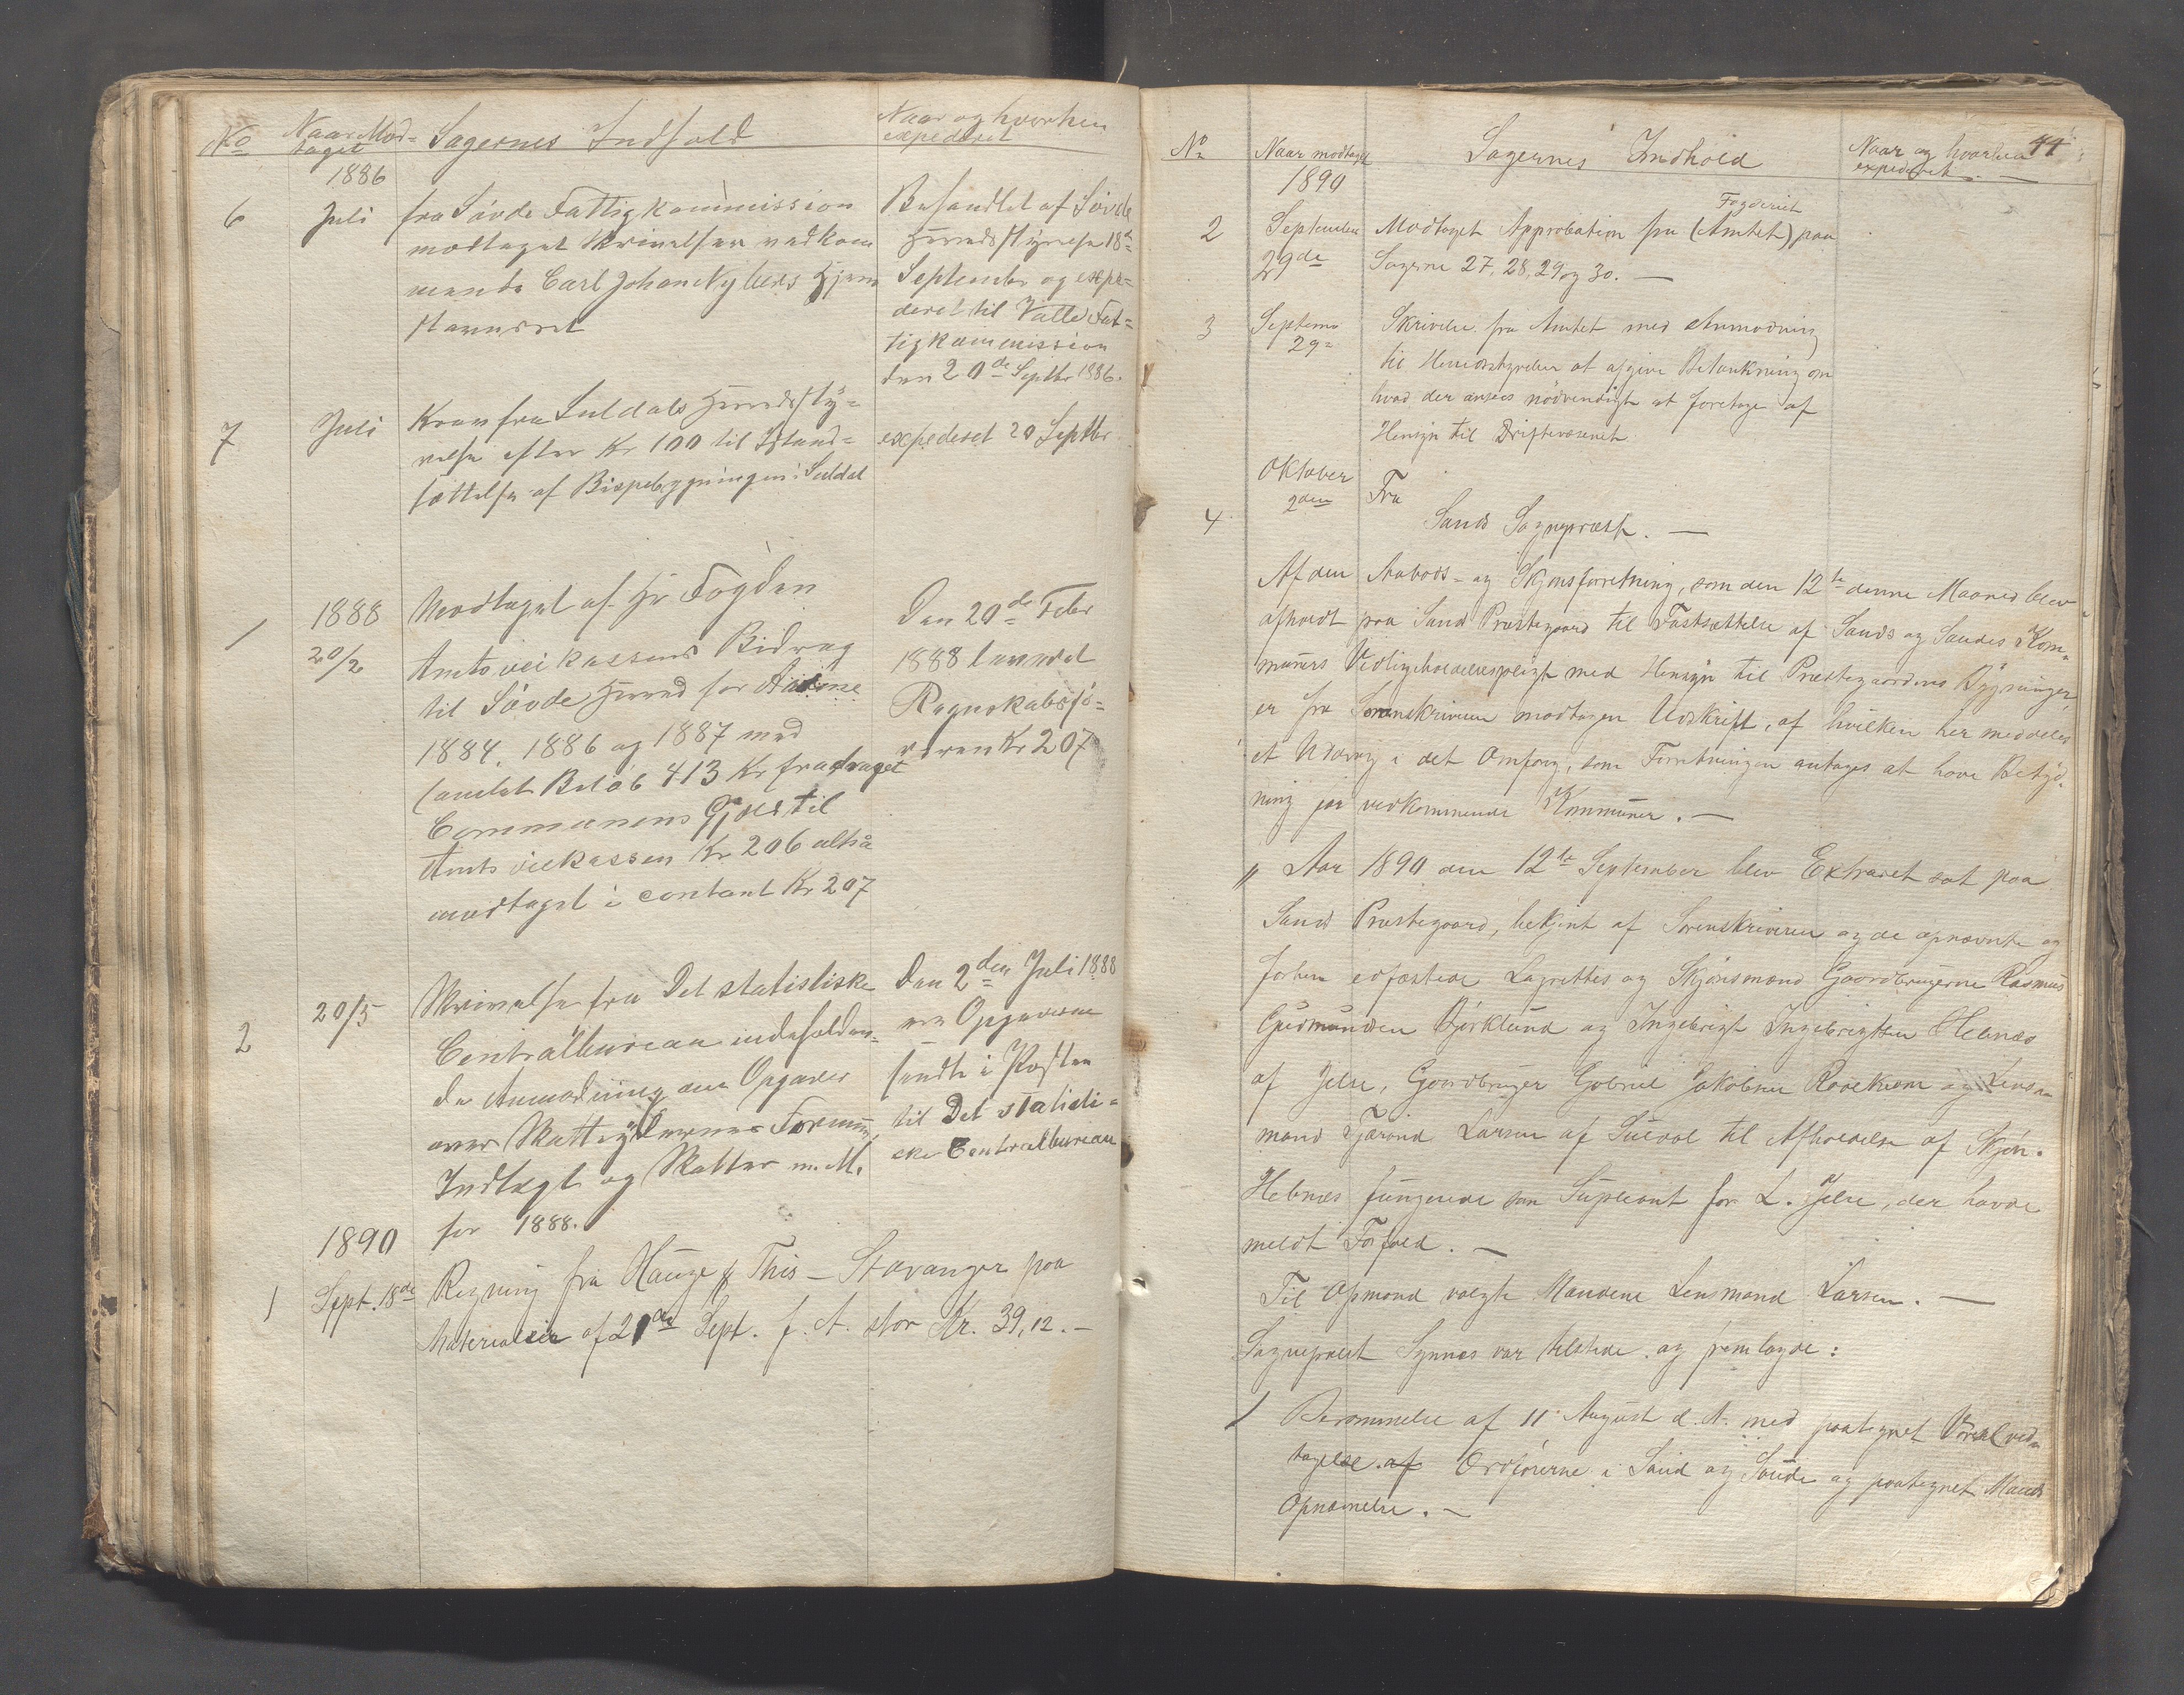 No Naar Mod= Sagernes Indhold Naar og hvorhen
taget expederet
1886
6 Juli fra Søvde Fattigkommission
modtaget Skrivelser vedkom
mende Carl Johan Nybers Hjem
stavnsret
Behandlet af Søvde
Herredsstyrelse 18de
September og expe=
deret til Valle Fat=
tigkommission
den 20de Septbr 1886.
7 Juli Krav fra Suldals Herredssty=
relse efter Kr 100 til Istand=
sættelse af Bispebygningen i Suldal
expederet 20 Septbr
1 1888 Modtaget af Hr Fogden
20/2 Amtsveikassens Bidrag
til Søvde Herred for Aarene
1884, 1886 og 1887 med
samlet Beløb 413 Kr fradraget
Communens Gjæld til
Amtsveikassen Kr 206 altsaa
modtaget i contant Kr 207
Den 20de Febr
1888 leveret
Regnskabsfø=
reren Kr 207
2 20/5 Skrivelse fra Det statistiske
Centralbureau indeholden=
de Anmodning om Opgaver
over Skatteydernes Formue,
Indtægt og Skatter m. M.
for 1888.
Den 2den Juli 1888
ere Opgaverne
sendte i Posten
til Det statisti=
ske Centralbureau
1890
1 Sept. 18de Regning fra Hauge & This – Stavanger paa
Materialier af 21de Sept. f. A. stor Kr. 39,12. –
44
No Naar modtaget Sagernes Indhold Naar og hvorhen
expederet. –
1890
2 September Modtaget Approbation fra (Amtet) paa
Fogderiet
29de Sagerne 27, 28, 29 og 30. –
3 Septembr Skrivelse fra Amtet med Anmodning
29= til Herredsstyrelsen at afgive Betænkning om
hvad der ansees nødvendigt at foretage af
Hensyn til Driftevæsenet
Oktober
2den Fra
4 Sands Sogneprest. –
Af den Aabods- og Skjønsforretning, som den 12te denne Maaned blev
afholdt paa Sand Præstegaard til Fastsættelse af Sands og Saudes Kom=
muners Vedligeholdelsespligt med Hensyn til Præstegaardens Bygninger,
er fra Sorenskriveren modtagen Udskrift, af hvilken her meddeles
et Uddrag i det Omfang, som Forretningen antages at have Betyd=
ning for vedkommende Kommuner. –
" Aar 1890 den 12te September blev Extraret sat paa
Sand Præstegaard, betjent af Sorenskriveren og de opnævnte og
forhen edfæstede Lagrettes og Skjønsmænd Gaardbrugerne Rasmus
Gudmundsen Bjørklund og Ingebrigt Ingebrigtsen Hebnæs
af Jelse, Gaardbruger Gabriel Jakobsen Rovekvam og Lens=
mand Tjerand Larsen af Suldal til Afholdelse af Skjøn.
Hebnæs fungerede som Supleant for L. Jelse, der havde
meldt Forfald. –
Til Opmand valgte Mændene Lensmand Larsen. –
Sogneprest Synnes var tilstede og fremlagde:
1 Berammelse af 11 August d. A. med paategnet Varsel ved=
tagelse af Ordførerne i Sand og Saude og paategnet Mands
Opnævnelse. –